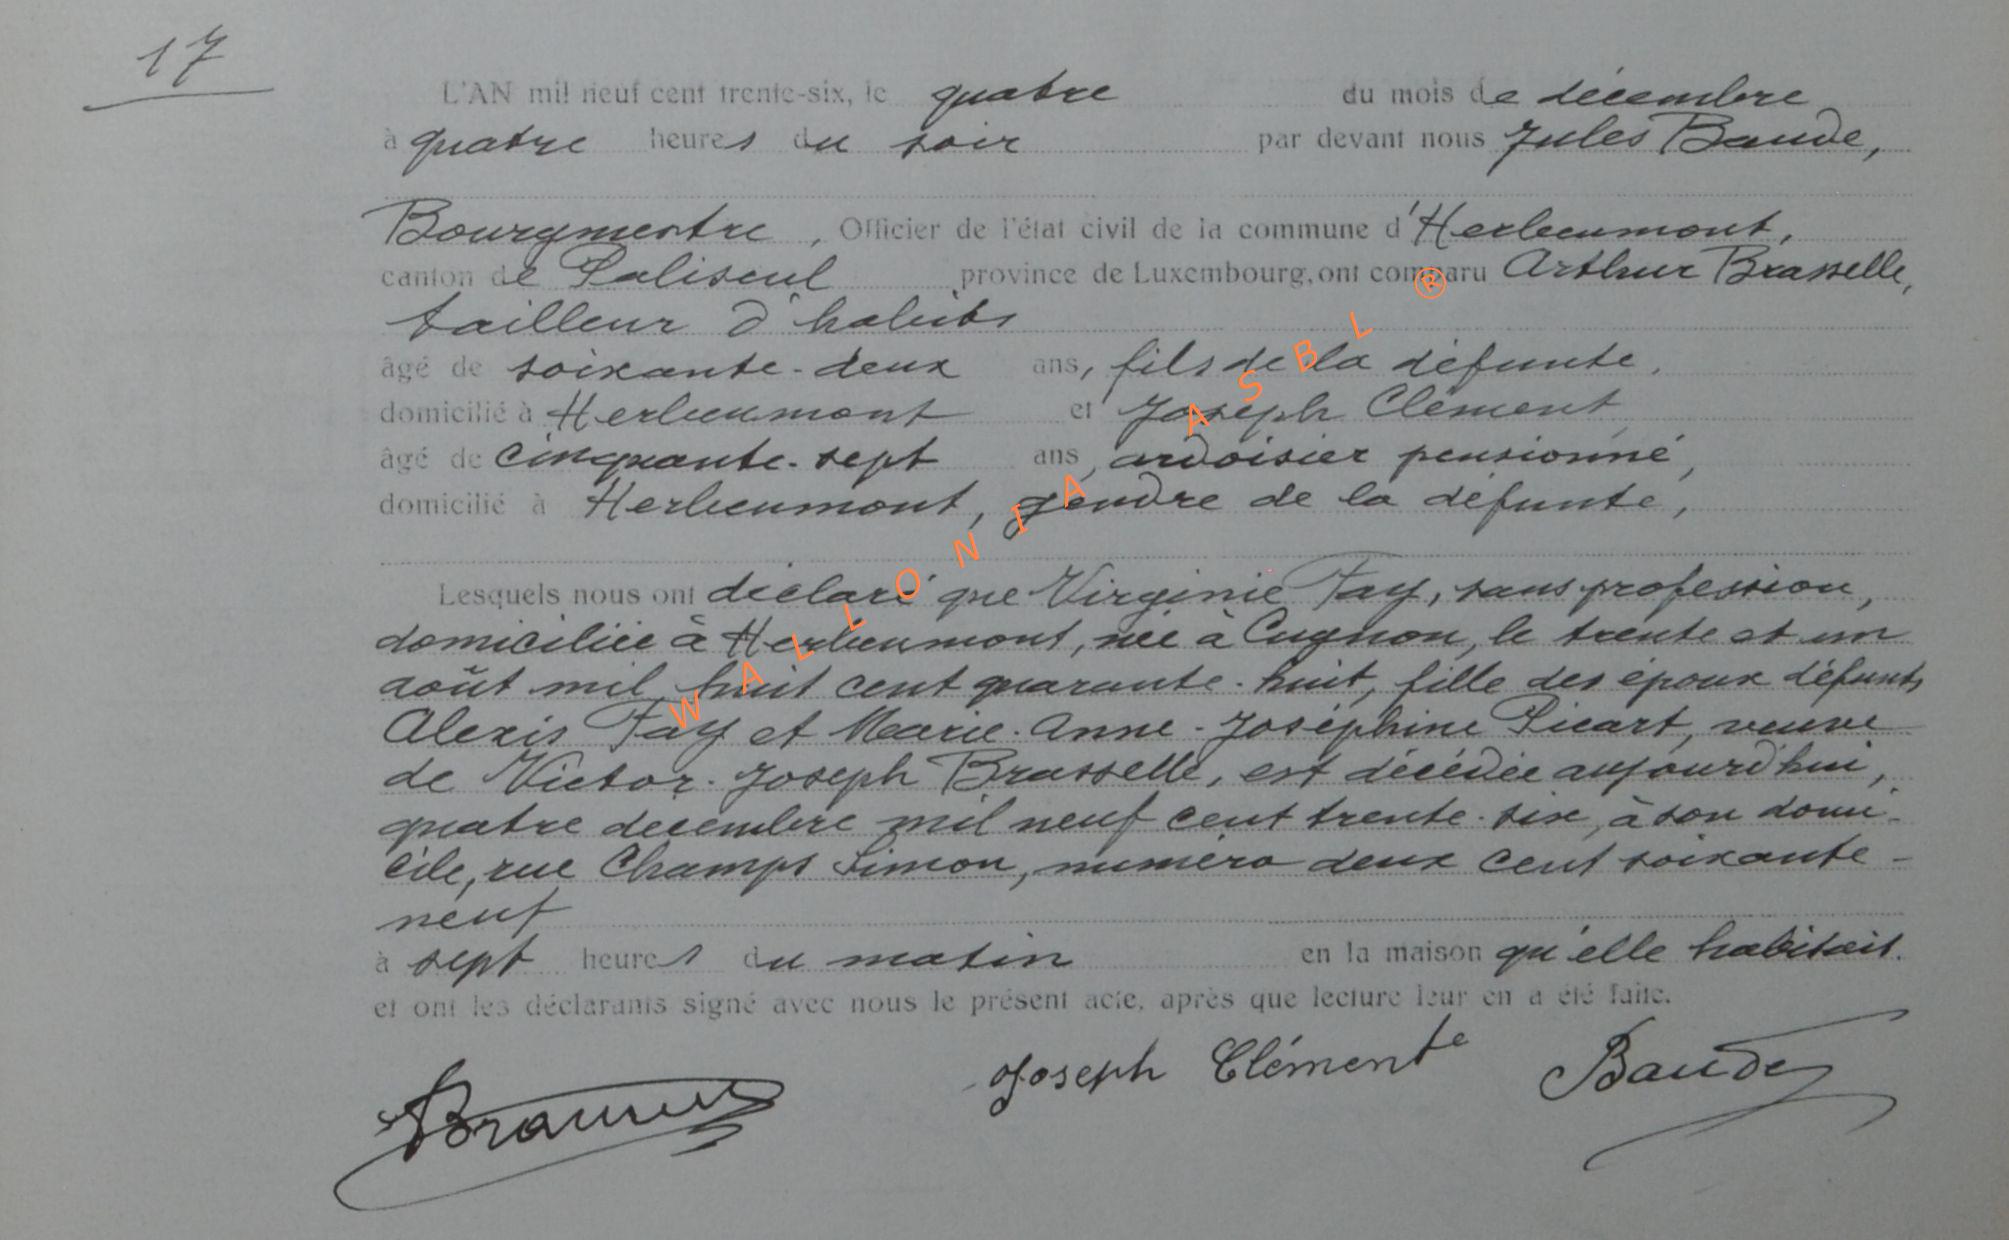 17
L'AN mil neuf cent trente-six, le quatre du mois de décembre
à quatre heures du soir par devant nous Jules Baude,
Bourgmestre, Officier de l'état civil de la commune d'Herbeumont,
canton de Paliseul province de Luxembourg, ont comparu Arthur Brasselle,
tailleur d'habits
âgé de soixante-deux ans, fils de la défunte,
domicilié à Herbeumont et Joseph Clément
âgé de cinquante-sept ans, ardoisier pensionné,
domicilié à Herbeumont, gendre de la défunte,
Lesquels nous ont déclaré que Virginie Fay, sans profession,
domiciliée à Herbeumont, née à Cugnon, le trente et un
août mil huit cent quarante-huit, fille des époux défunts
Alexis Fay et Marie-Anne-Joséphine Picart, veuve
de Victor-Joseph Brasselle, est décédée aujourd'hui,
quatre décembre mil neuf cent trente-six, à son domi-
cile, rue Champs Simon, numéro deux cent soixante-
neuf
à sept heures du matin en la maison qu'elle habitait.
et ont les déclarants signé avec nous le présent acte, après que lecture leur en a été faite.
Joseph Clément Baude
WALLONIA ASBL ®